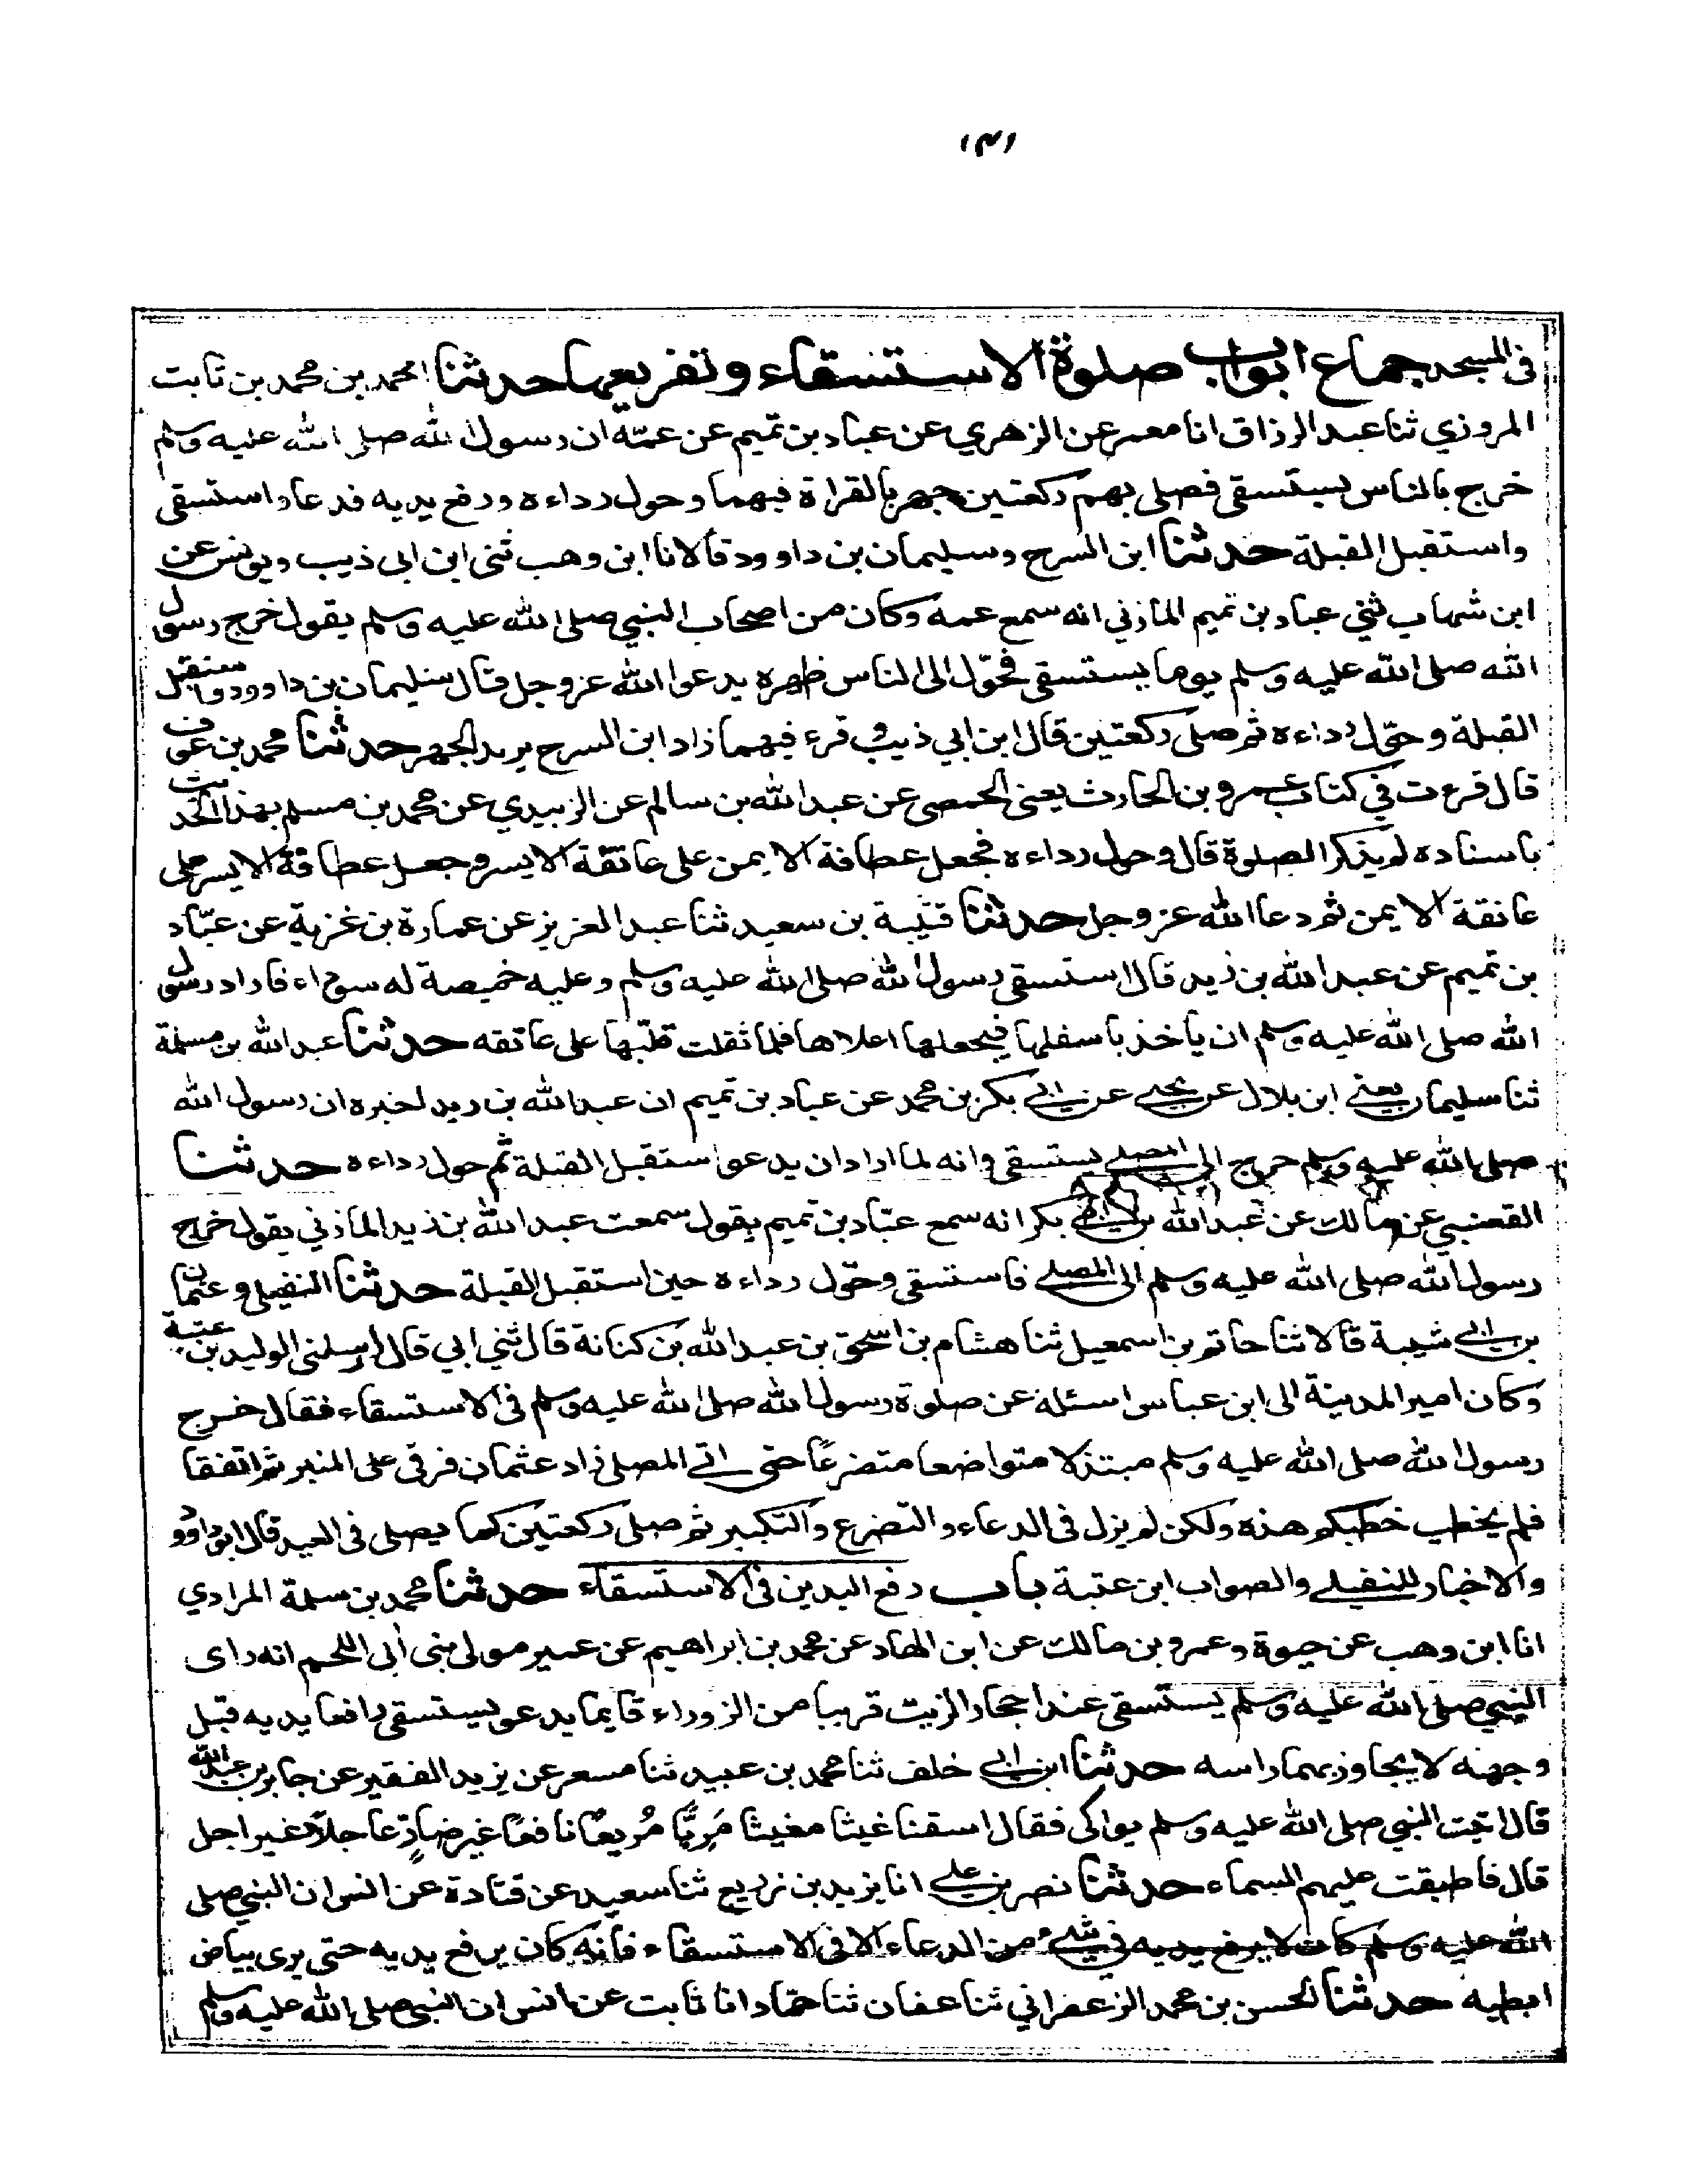 ١٣١
فى المسجد جماع ابواب صلوة الاستسقاء وتفريعها حدثنا احمد بن محمد بن ثابت
المروزي ثنا عبد الرزاق انا معمر عن الزهري عن عباد بن تميم عن عمّه ان رسول الله صلى الله عليه وسلم
خرج بالناس يستسقى فصلى بهم ركعتين جهر بالقراة فيهما وحول رداءه ورفع يديه فدعا واستسقى
واستقبل القبلة حدثنا ابن السرح وسليمان بن داوود قالا نا ابن وهب ثنى ابن ابى ذيب ويونس عن
ابن شهاب ثني عباد بن تميم المازني انه سمع عمه وكان من اصحاب النبي صلى الله عليه وسلم يقول خرج رسول
الله صلى الله عليه وسلم يوما يستسقى فحوّل الى الناس ظهره يدعوا الله عز وجل قال سليمان بن داوود واستقبل
القبلة وحوّل رداءه ثم صلى ركعتين قال ابن ابي ذيب وقرء فيهما زاد ابن السرح يريد الجهر حدثنا محمد بن عوف
قال قرءت في كتاب عمرو بن الحارث يعنى الحمصى عن عبد الله بن سالم عن الزبيدي عن محمد بن مسلم بهذا الحديث
باسناده لم يذكر الصلوة قال وحول رداءه فجعل عطافة الايمن على عاتقة الايسر وجعل عطافة الايسر على
عاتقة الايمن ثم دعا الله عز وجل حدثنا قتيبة بن سعيد ثنا عبد العزيز عن عمارة بن غزية عن عبّاد
بن تميم عن عبد الله بن زيد قال استسقى رسول الله صلى الله عليه وسلم وعليه خميصة له سوداء فاراد رسول
الله صلى الله عليه وسلم ان ياخذ باسفلها فيجعلها اعلاها فلما ثقلت قلبّها على عاتقه حدثنا عبد الله بن مسلمة
ثنا سليمان يعنى ابن بلال عن يحيى عن ابى بكر بن محمد عن عباد بن تميم ان عبد الله بن زيد اخبره ان رسول الله
صلى الله عليه وسلم خرج الى المصلى يستسقى وانه لما اراد ان يدعوا استقبل القبلة ثم حول رداءه حدثنا
القعنبي عن مالك عن عبد الله بن ابى بكر انه سمع عبّاد بن تميم يقول سمعت عبد الله بن زيد المازني يقول خرج
رسول الله صلى الله عليه وسلم الى المصلى فاستسقى وحوّل رداءه حين استقبل القبلة حدثنا النفيلي وعثمان
بن ابى شيبة قالا ثنا حاتم بن اسمعيل ثنا هشام بن اسحق بن عبد الله بن كنانة قال ثني ابي قال ارسلنى الوليد بن عتبة
وكان امير المدينة الى ابن عباس اسئله عن صلوة رسول الله صلى الله عليه وسلم فى الاستسقاء فقال خرج
رسول الله صلى الله عليه وسلم مبتذلا متواضعا متضرعًا حتى اتى المصلى زاد عثمان فرقى على المنبر ثم اتفقا
فلم يخطب خطبكم هذه ولكن لم يزل فى الدعاء والتضرع والتكبير ثم صلى ركعتين كما يصلى فى العيد قال ابو داوود
والاخبار للنفيلى والصواب ابن عتبة باب رفع اليدين فى الاستسقاء حدثنا محمد بن سلمة المرادي
انا ابن وهب عن حيوة وعمرو بن مالك عن ابن الهاد عن محمد بن ابراهيم عن عمير مولى بنى أبى اللحم انه راى
النبي صلى الله عليه وسلم يستسقى عند احجار الزيت قريبا من الزوراء قايما يدعو يستسقى رافعا يديه قبل
وجهه لا يجاوز بهما راسه حدثنا ابن ابى خلف ثنا محمد بن عبيد ثنا مسعر عن يزيد الفقير عن جابر بن عبد الله
قال اتيت النبي صلى الله عليه وسلم يواكى فقال اسقنا غيثا مغيثا مَرِيًّا مُريعًا نافعًا غير ضارٍّ عاجلاً غير اجل
قال فاطبقت عليهم السماء حدثنا نصر بن على انا يزيد بن زريع ثنا سعيد عن قتادة عن انس ان النبي صلى
الله عليه وسلم كان لا يرفع يديه فى شىء من الدعاء الا فى الاستسقاء فانه كان يرفع يديه حتى يرى بياض
ابطيه حدثنا الحسن بن محمد الزعفراني ثنا عفان ثنا حمّاد انا ثابت عن انس ان النبي صلى الله عليه وسلم